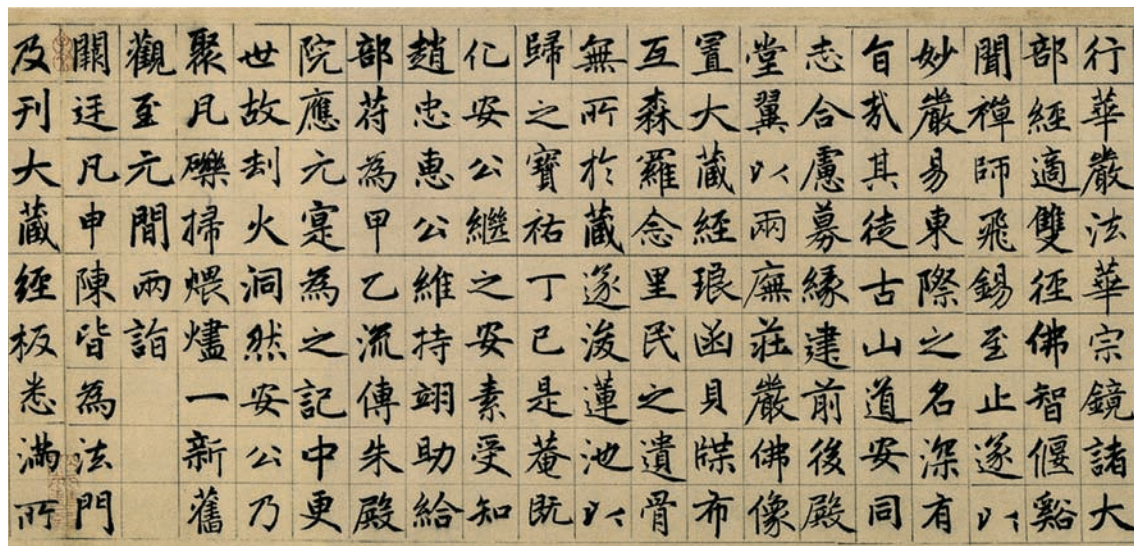 行華嚴法華宗鏡諸大
部經適雙徑佛智偃谿
聞禪師飛錫至止遂以
妙嚴易東際之名深有
旨哉其徒古山道安同
志合慮募緣建前後殿
堂翼以兩廡莊嚴佛像
置大藏經琅函貝牒布
互森羅念里民之遺骨
無所於藏遂浚蓮池以
歸之寶祐丁巳是菴既
化安公繼之安素受知
趙忠惠公維持翊助給
部苻為甲乙流傳朱殿
院應元寔為之記中更
世故刦火洞然安公乃
聚凡礫掃煨燼一新舊
觀至元間兩詣
闕廷凡申陳皆為法門
及刊大藏經板悉滿所